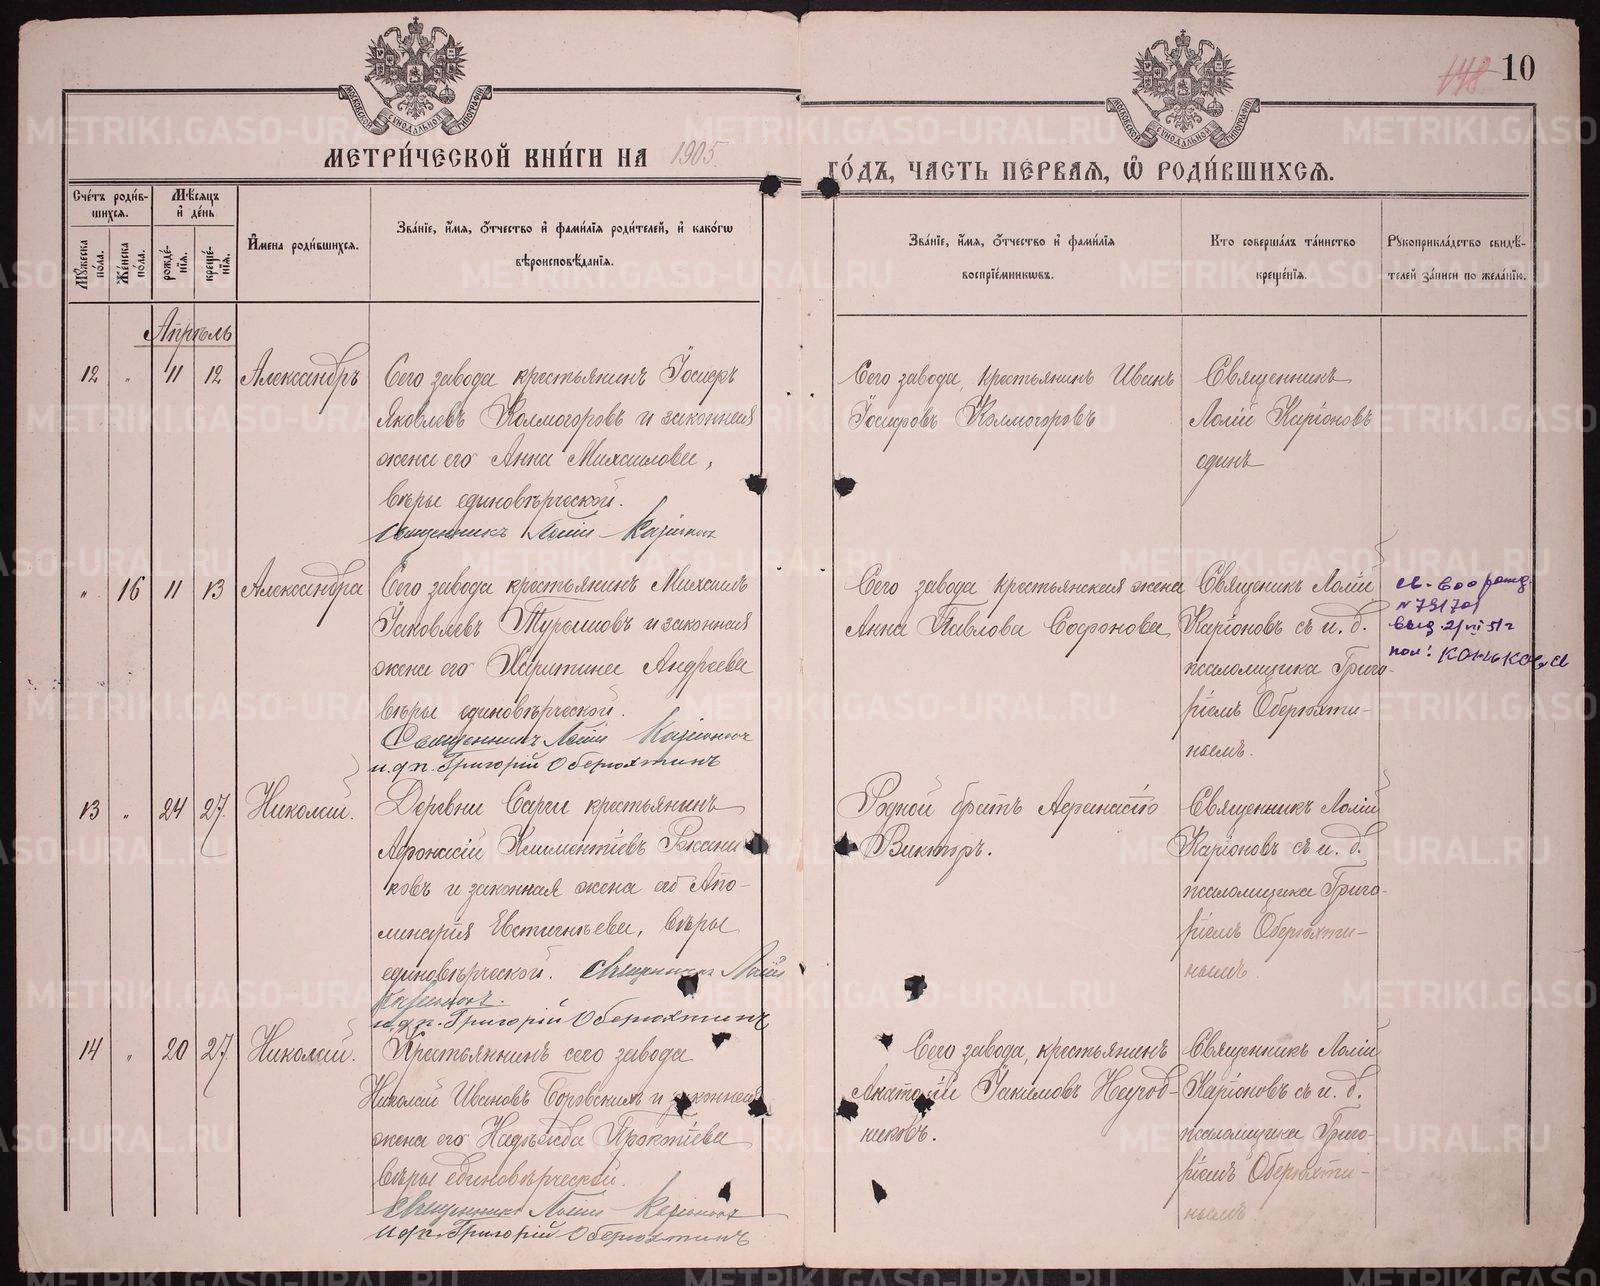 МОСКОВСКОЙ СУНОДАЛЬНОЙ ТИПОГРАФІИ
МОСКОВСКОЙ СУНОДАЛЬНОЙ ТИПОГРАФІИ
148 10
МЕТРИ́ЧЕСКОЙ КНИ́ГИ НА 1905
ГО́ДЪ, ЧАСТЬ ПЕ́РВАЯ, Ѡ РОДИ́ВШИХСЯ.
Сче́тъ роди́вшихся.
Мѣ́сяцъ и де́нь
Му́жеска по́ла.
Же́нска по́ла.
рожде́нія.
креще́нія.
И҆мена роди́вшихся.
Зва́ніе, и҆́мя, ѻ҆́тчество и҆ фами́лія роди́телей, и҆ како́гѡ вѣроисповѣ́данія.
Зва́ніе, и҆́мя, ѻ҆́тчество и҆ фами́лія воспріе́мниковъ.
Кто соверша́лъ та́инство креще́нія.
Рукоприкла́дство свидѣ́телей за́писи по жела́нію.
Апрѣль
12 " 11 12 Александръ
Сего завода крестьянинъ Іосифъ
Яковлевъ Колмогоровъ и законная
жена его Анна Михаилова,
вѣры единовѣрческой.
Священникъ Лолій Каріоновъ
Сего завода, крестьянинъ Иванъ
Іосифовъ Колмогоровъ
Священникъ
Лолій Каріоновъ
одинъ
" 16 11 13 Александра
Сего завода крестьянинъ Михаилъ
Іаковлевъ Турышовъ и законная
жена его Харитина Андреева
вѣры единовѣрческой.
Священникъ Лолій Каріоновъ
и.д.п. Григорій Оберюхтинъ
Сего завода крестьянская жена
Анна Павлова Софонова
Священикъ Лолій
Каріоновъ съ и. д.
псаломщика Григо-
ріемъ Оберюхти-
нымъ.
св-во о рожд.
N 791701
выд. 2/VI 51 г
пол:
13 " 24 27 Николай.
Деревни Сарги крестьянинъ
Афонасій Климентіевъ
ковъ и законная жена его Апо-
линарія Евстигнѣева, вѣры
единовѣрческой. Священникъ Лолій
Каріоновъ.
и.д.п. Григорій Оберюхтинъ
Родной братъ Афанасію
Викторъ.
Священникъ Лолій
Каріоновъ съ и. д.
псаломщика Григо-
ріемъ Оберюхти-
нымъ.
14 " 20 27 Николай.
Крестьянинъ сего завода
Николай Ивановъ Боровскихъ и законная
жена его Надѣжда Проктіева
вѣры единовѣрческой.
Священникъ Лолій Каріоновъ
и.д.п. Григорій Оберюхтинъ
Сего завода, крестьянинъ
Анатолій Іакимовъ Неугод-
никовъ.
Священникъ Лолій
Каріоновъ съ и. д.
псаломщика Григо-
ріемъ Оберюхти-
нымъ
METRIKI.GASO-URAL.RU